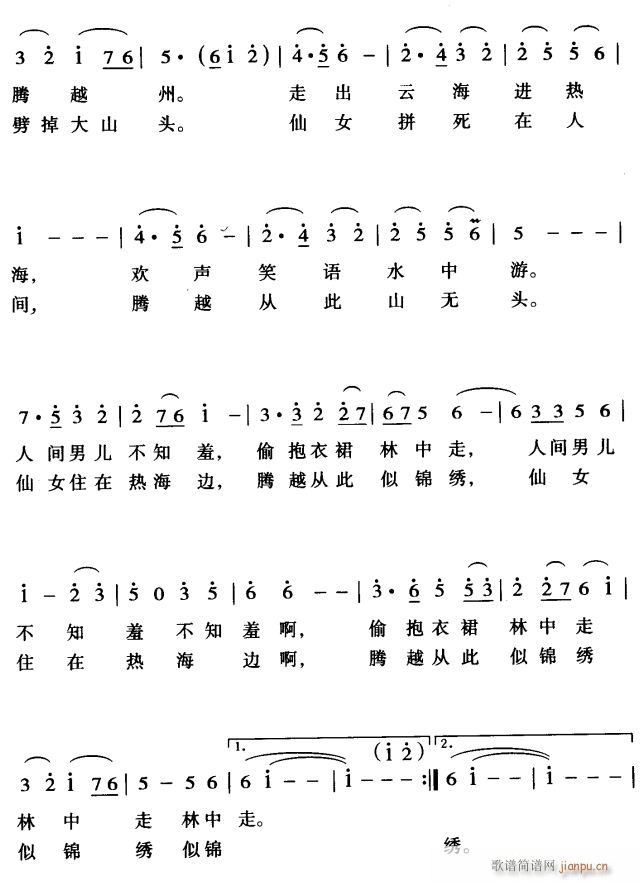 3 2 i 7 6 | 5 · ( 6 i 2 ) | 4 · 5 6 - | 2 · 4 3 2 | 2 5 5 6 |
腾 越 州。 走 出 云 海 进 热
劈 掉 大 山 头。 仙 女 拼 死 在 人
i - - - | 4 · 5 6 - | 2 · 4 3 2 | 2 5 5 6 | 5 - - - |
海, 欢 声 笑 语 水 中 游。
间, 腾 越 从 此 山 无 头。
7 · 5 3 2 | 2 7 6 i - | 3 · 3 2 2 7 | 6 7 5 6 - | 6 3 3 5 6 |
人 间 男 儿 不 知 羞, 偷 抱 衣 裙 林 中 走, 人 间 男 儿
仙 女 住 在 热 海 边, 腾 越 从 此 似 锦 绣, 仙 女
i - 2 3 | 5 0 3 5 | 6 6 - - | 3 · 6 5 5 3 | 2 2 7 6 i |
不 知 羞 不 知 羞 啊, 偷 抱 衣 裙 林 中 走
住 在 热 海 边 啊, 腾 越 从 此 似 锦 绣
1. ( i 2 ) 2.
3 2 i 7 6 | 5 - 5 6 | 6 i - - | i - - - :‖ 6 i - - | i - - - ‖
林 中 走 林 中 走。
似 锦 绣 似 锦 绣。
歌谱简谱网
jianpu.cn